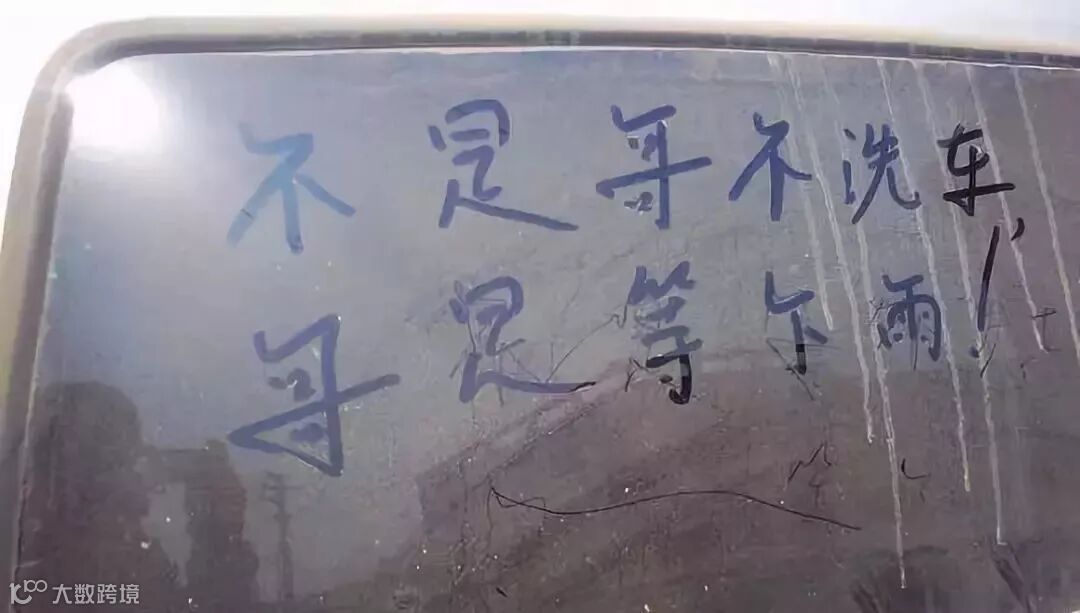 不是哥不洗车,
哥是等下雨!
100 大数跨境